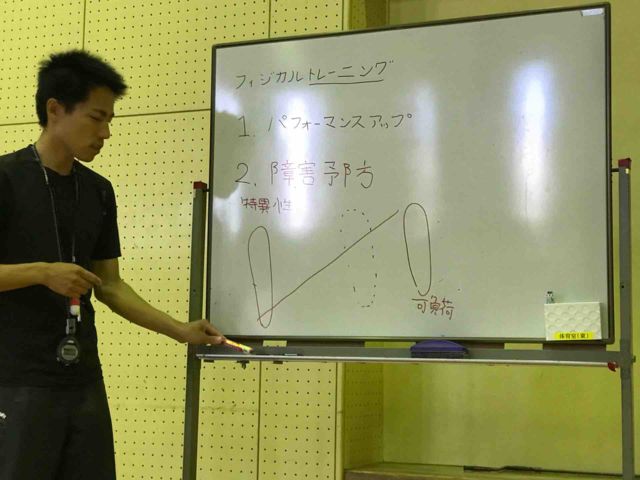 フィジカルトレーニング
1. パフォーマンスアップ
2. 障害予防
特異性
可負荷
体育室(東)